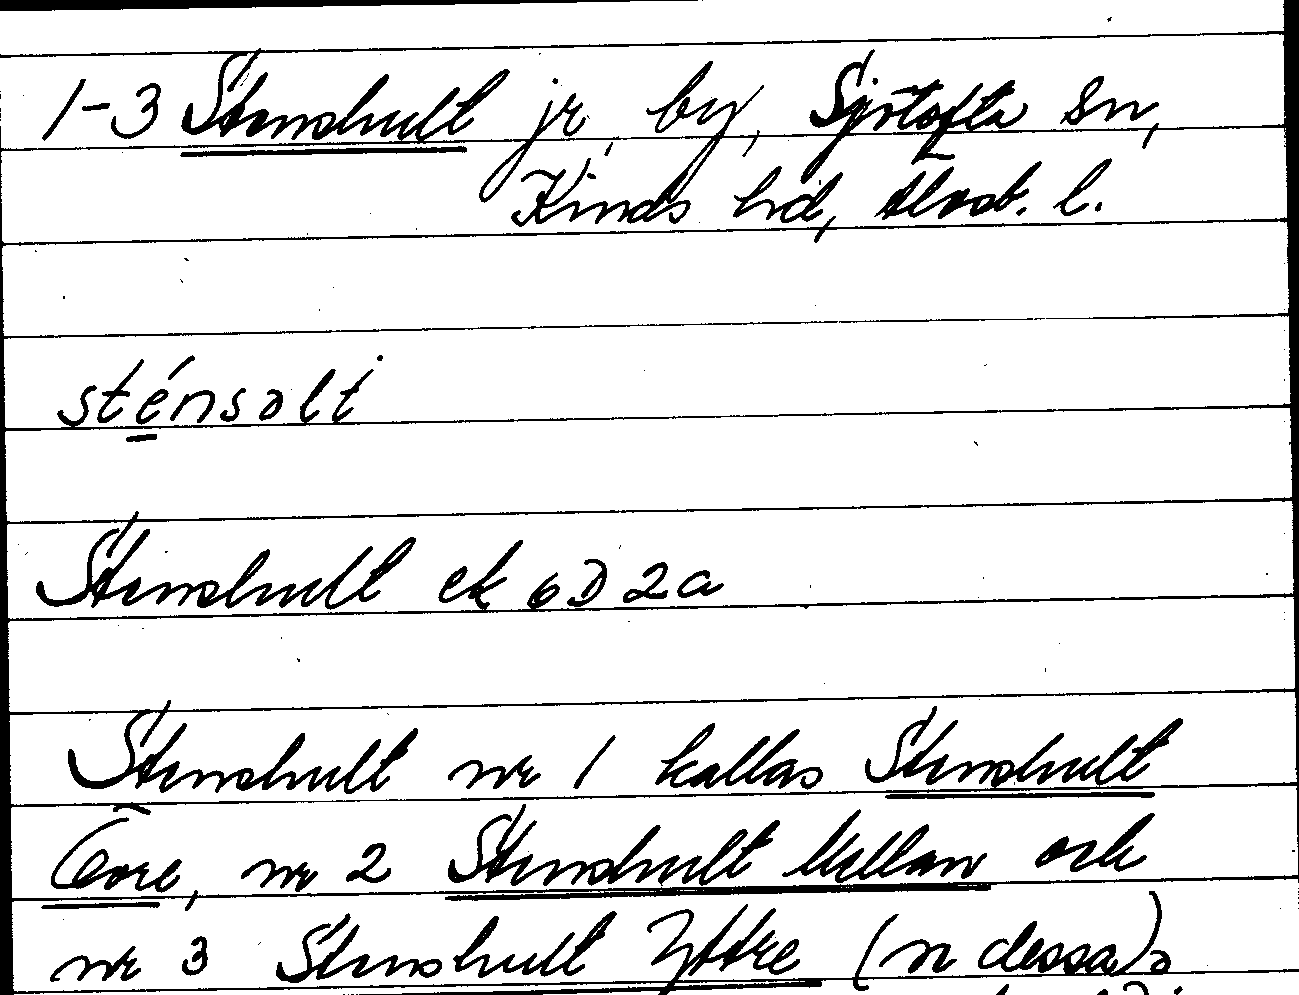 1-3 Stenshult jr, by, Sjötofta sn,
Kinds hd, Älvsb. l.
sténsəlt
Stenshult ek 6D2a
Stenshult nr 1 kallas Stenshult
Övre, nr 2 Stenshult Mellan och
nr 3 Stenshult Yttre (n dessa)